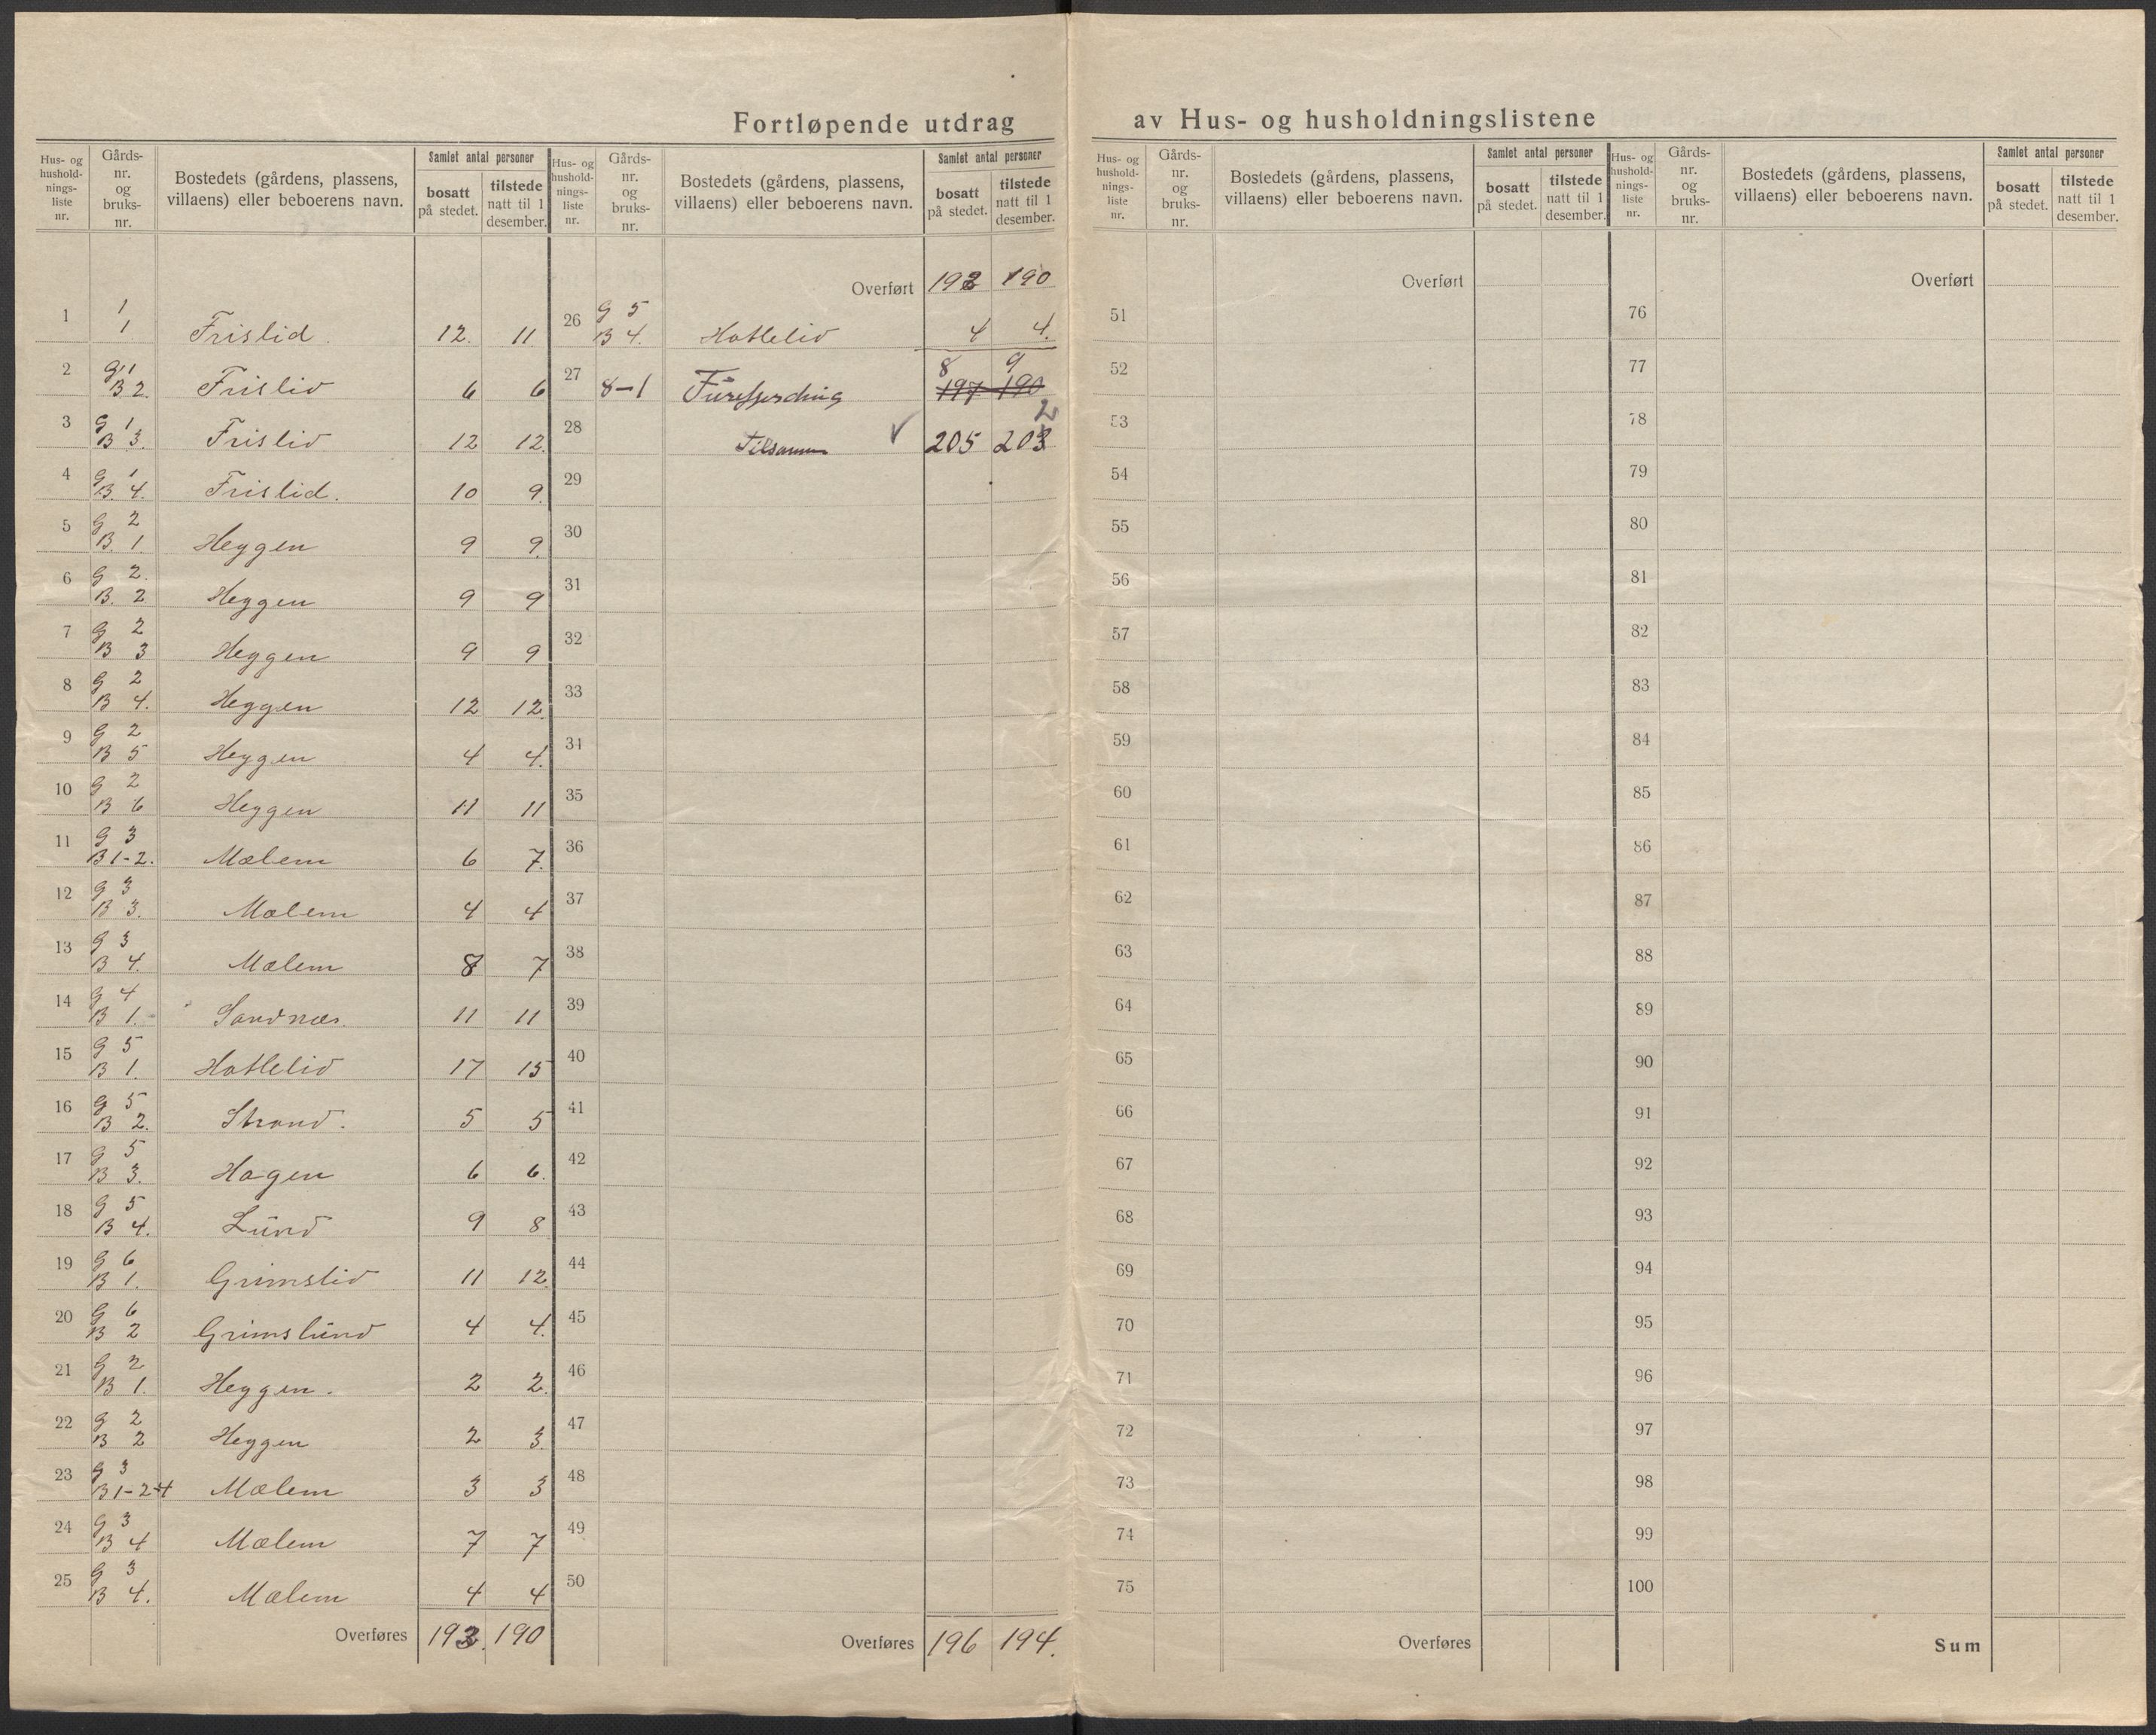 Fortløpende utdrag av Hus- og husholdningslistene
Hus- og hushold-nings-liste nr. | Gårds-nr. og bruks-nr. | Bostedets (gårdens, plassens, villaens) eller beboerens navn. | Samlet antal personer | bosatt på stedet. | tilstede natt til 1 desember.
1 | 1 1 | Frislid. | 12. | 11.
2 | G 1 B 2. | Frislid | 6 | 6
3 | G 1 B 3. | Frislid | 12 | 12.
4 | G 1 B. 4. | Frislid. | 10 | 9.
5 | G 2 B. 1. | Heggen | 9 | 9.
6 | G 2. B. 2 | Heggen | 9 | 9
7 | G 2 B 3 | Heggen | 9 | 9
8 | G 2 B 4. | Heggen | 12 | 12.
9 | G 2 B 5 | Heggen | 4 | 4.
10 | G 2 B 6 | Heggen | 11 | 11
11 | G 3 B 1-2. | Mælem | 6 | 7.
12 | G 3 B 3. | Mælem | 4 | 4
13 | G 3 B 4. | Mælem | 8 | 7
14 | G 4 B 1. | Sandnæs. | 11 | 11
15 | G 5 B 1. | Hatlelid | 17 | 15
16 | G 5 B 2. | Strand. | 5 | 5
17 | G 5 B 3. | Hagen | 6 | 6.
18 | G 5 B 4. | Lund | 9 | 8
19 | G 6 B 1. | Grimslid | 11 | 12.
20 | G 6 B 2 | Grimslund | 4 | 4.
21 | G 2 B 1. | Heggen. | 2 | 2.
22 | G 2 B 2 | Heggen | 2 | 3.
23 | G 3 B 1-2+4 | Mælem | 3 | 3
24 | G 3 B 4 | Mælem | 7 | 7
25 | G 3 B 4. | Mælem | 4 | 4
Overføres | 193. | 190
Hus- og hushold-nings-liste nr. | Gårds-nr. og bruks-nr. | Bostedets (gårdens, plassens, villaens) eller beboerens navn. | Samlet antal personer | bosatt på stedet. | tilstede natt til 1 desember.
Overført | 192 | 190
26 | G 5 B 4. | Hatlelid | 4 | 4.
27 | 8-1 | 8 | 9
197 190
28 | Tilsammen | √ 205 | 203 2
29
30
31
32
33
34
35
36
37
38
39
40
41
42
43
44
45
46
47
48
49
50
Overføres | 196 | 194.
Hus- og hushold-nings-liste nr. | Gårds-nr. og bruks-nr. | Bostedets (gårdens, plassens, villaens) eller beboerens navn. | Samlet antal personer | bosatt på stedet. | tilstede natt til 1 desember.
Overført
51
52
53
54
55
56
57
58
59
60
61
62
63
64
65
66
67
68
69
70
71
72
73
74
75
Overføres
Hus- og hushold-nings-liste nr. | Gårds-nr. og bruks-nr. | Bostedets (gårdens, plassens, villaens) eller beboerens navn. | Samlet antal personer | bosatt på stedet. | tilstede natt til 1 desember.
Overført
76
77
78
79
80
81
82
83
84
85
86
87
88
89
90
91
92
93
94
95
96
97
98
99
100
Sum